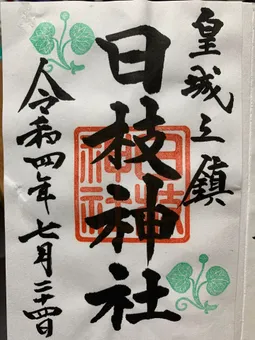 皇城之鎮
日枝神社
日枝神社
令和四年七月二十四日